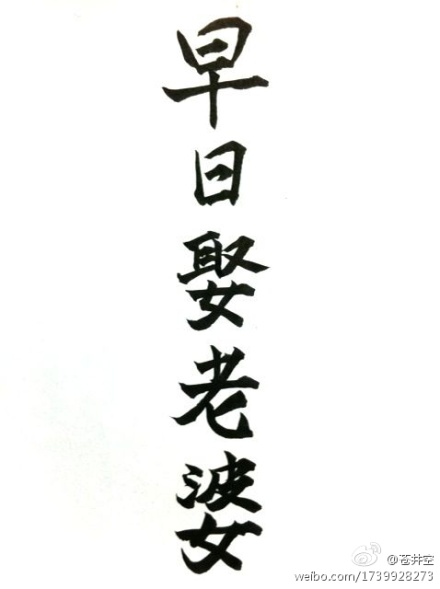 早日娶老婆
@苍井空
weibo.com/1739928273